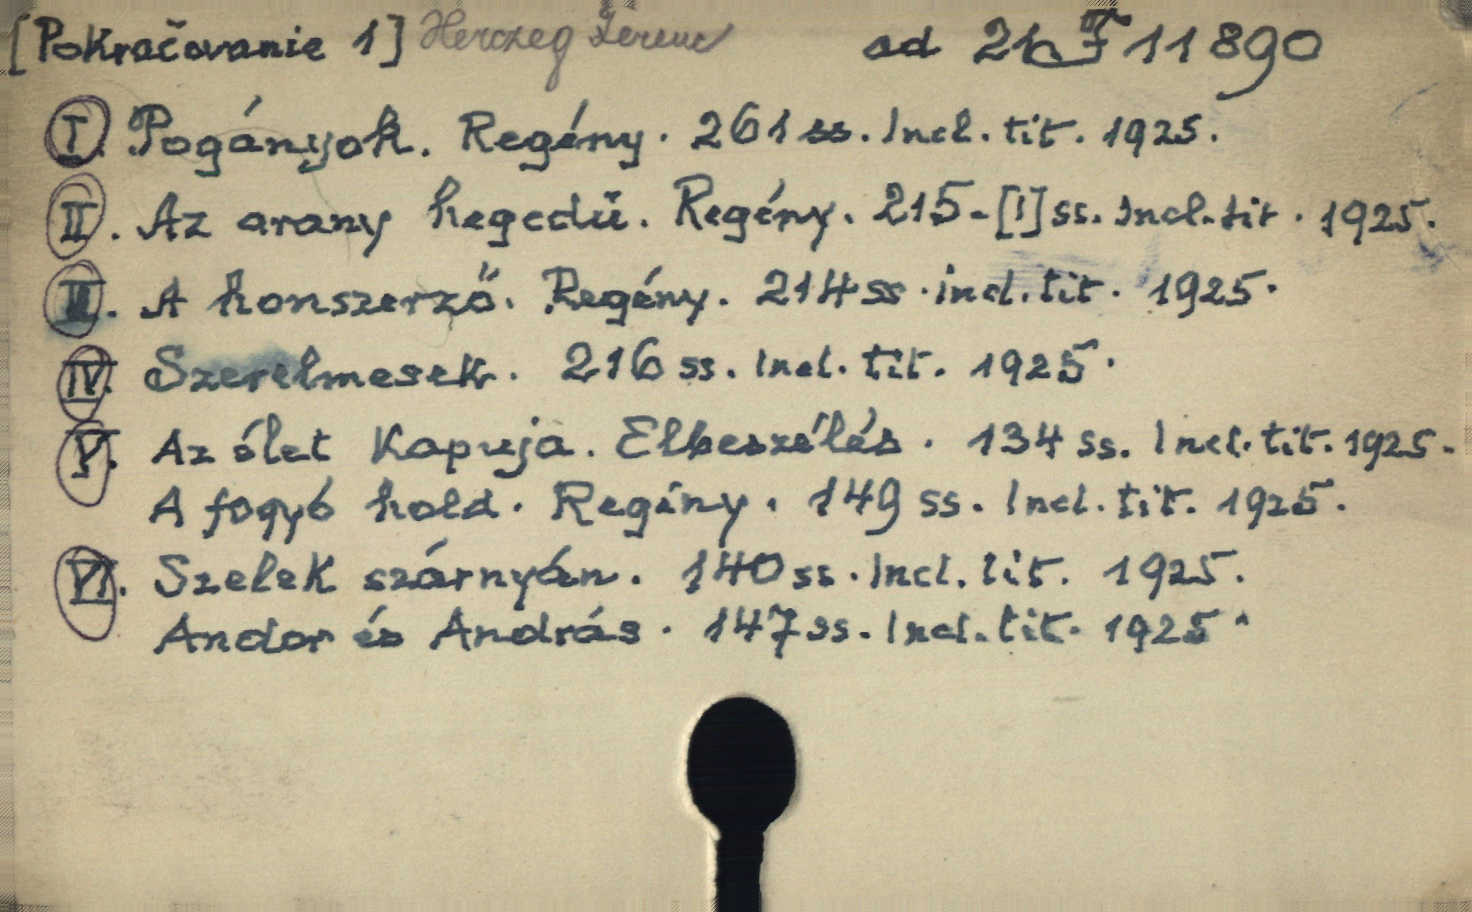 [Pokračovanie 1] Herczeg Ferenc ad 21 F 11890
I. Pogányok. Regény. 261 ss. Incl. tit. 1925.
II. Az arany hegedű. Regény. 215-[1] ss. Incl. tit. 1925.
III. A honszerző. Regény. 214 ss. incl. tit. 1925.
IV. Szerelmesek. 216 ss. Incl. tit. 1925.
V. Az élet kapuja. Elbeszélés. 134 ss. Incl. tit. 1925.
A fogyó hold. Regény. 149 ss. Incl. tit. 1925.
VI. Szelek szárnyán. 140 ss. Incl. tit. 1925.
Andor és András. 147 ss. Incl. tit. 1925.